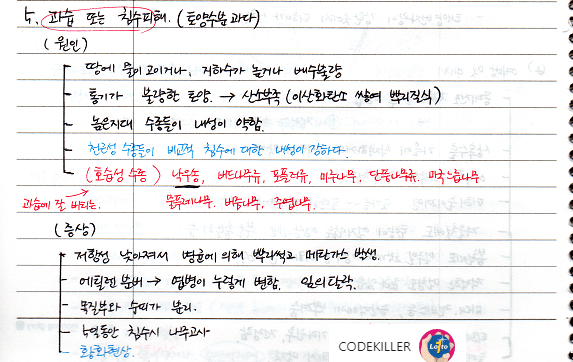 5. 과습 또는 침수피해. (토양수분 과다)
(원인)
땅에 물이 고이거나, 지하수가 높거나 배수불량
통기가 불량한 토양. → 산소부족 (이산화탄소 쌓여 뿌리질식)
높은지대 수종들이 내성이 약함.
천근성 수종들이 비교적 침수에 대한 내성이 강하다.
(호습성 수종) 낙우송, 버드나무류, 포플러류, 오리나무, 단풍나무류, 미국느릅나무
과습에 잘 버티는. 물푸레나무, 버즘나무, 주엽나무.
(증상)
저항성 낮아져서 병균에 의해 뿌리썩고 메탄가스 발생.
에틸렌 분비 → 엽병이 누렇게 변함, 잎의 탈락.
목질부와 수피가 분리.
5일동안 침수시 나무고사
황화현상.
CODEKILLER